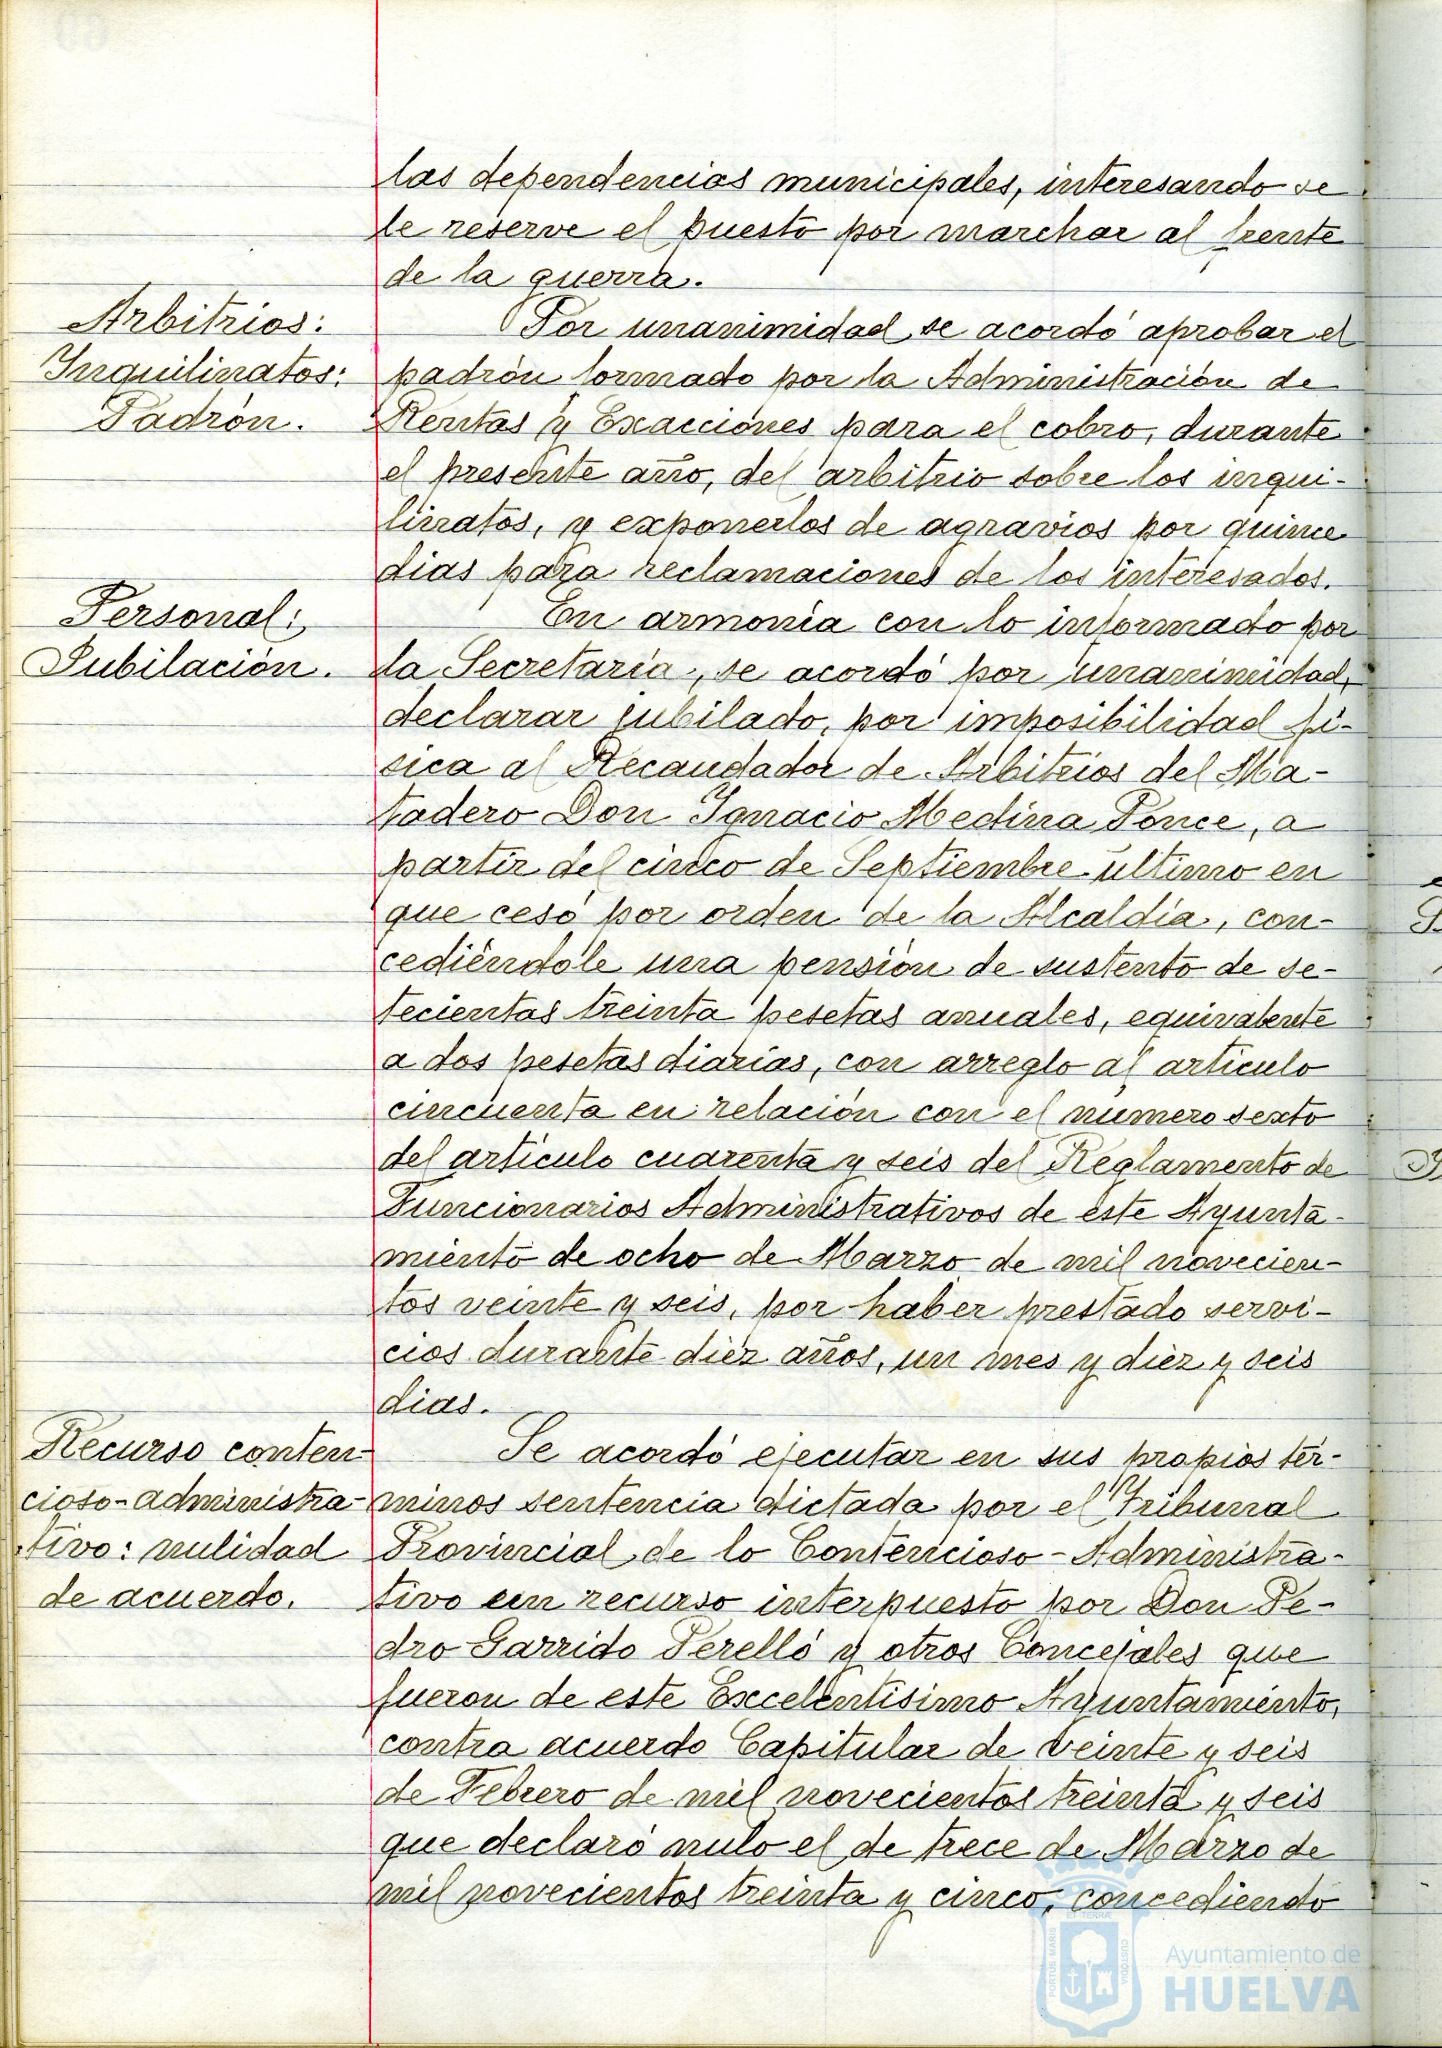 las dependencias municipales, interesando se
le reserve el puesto por marchar al frente
de la guerra.
Arbitrios:
Inquilinatos:
Padrón.
Por unanimidad se acordó aprobar el
padrón formado por la Administración de
Rentas y Exacciones para el cobro, durante
el presente año, del arbitrio sobre los inqui-
linatos, y exponerlos de agravios por quince
dias para reclamaciones de los interesados.
Personal:
Jubilación.
En armonía con lo informado por
la Secretaría, se acordó por unanimidad,
declarar jubilado, por imposibilidad fí-
sica al Recaudador de Arbitrios del Ma-
tadero Don Ignacio Medina Ponce, a
partir del cinco de Septiembre último en
que cesó por orden de la Alcaldía, con-
cediéndole una pensión de sustento de se-
tecientas treinta pesetas anuales, equivalente
a dos pesetas diarias, con arreglo al artículo
cincuenta en relación con el número sexto
del artículo cuarenta y seis del Reglamento de
Funcionarios Administrativos de este Ayunta-
miento de ocho de Marzo de mil novecien-
tos veinte y seis, por haber prestado servi-
cios durante diez años, un mes y diez y seis
dias.
Recurso conten-
cioso-administra-
tivo: nulidad
de acuerdo.
Se acordó ejecutar en sus propios tér-
minos sentencia dictada por el Tribunal
Provincial de lo Contencioso-Administra-
tivo en recurso interpuesto por Don Pe-
dro Garrido Perelló y otros Concejales que
fueron de este Excelentísimo Ayuntamiento,
contra acuerdo Capitular de veinte y seis
de Febrero de mil novecientos treinta y seis
que declaró nulo el de trece de Marzo de
mil novecientos treinta y cinco, concediendo
PORTUS MARIS
ET TERRAE
CUSTODIA
Ayuntamiento de
HUELVA